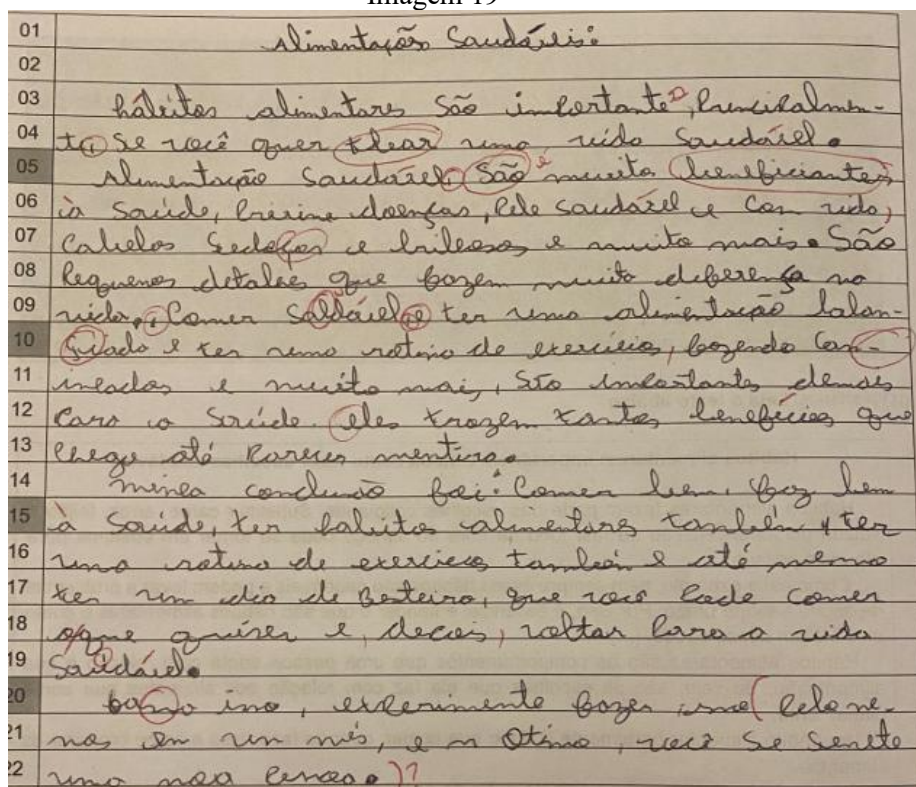 Imagem 19
01 Alimentação Saudáveis:
02
03 hábitos alimentares São importante, Principalmen-
04 te, Se você quer levar uma vida Saudável.
05 Alimentação Saudável, São é muito beneficiantes
06 à Saúde, Previne doenças, Pele saudável e Com vida,
07 Cabelos Sedosos e brilhosos e muito mais. São
08 Pequenos detalhes que fazem muito diferença na
09 vida, Comer Saldável e ter uma alimentação balan-
10 ciada e ter uma rotina de exercícios, fazendo Cam-
11 inhadas e muito mais, São importantes demais
12 Para a Saúde. eles trazem tantos benefícios que
13 Chega até Parecer mentira.
14 minha conclusão foi: Comer bem, faz bem
15 à Saúde, ter habitos alimentares também, ter
16 uma rotina de exercicios também e até mesmo
17 ter um dia de Besteira, que voce Pode Comer
18 oque quiser e, depois, voltar Para a vida
19 Saudável.
20 como isso, experimente fazer isso Pelo me-
21 nos em um mês, e m Otimo, você Se Senete
22 uma nova Pessoa.)?